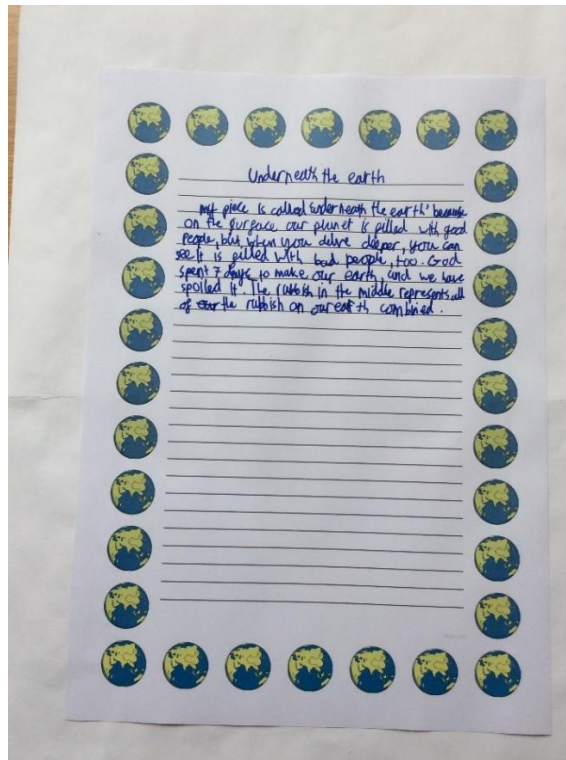 Underneath the earth
my piece is called 'underneath the earth' because
on the surface our planet is filled with good
people, but when you delve deeper, you can
see it is filled with bad people, too. God
spent 7 days to make our earth, and we have
spoiled it. The rubbish in the middle represents all
of the rubbish on our earth combined.